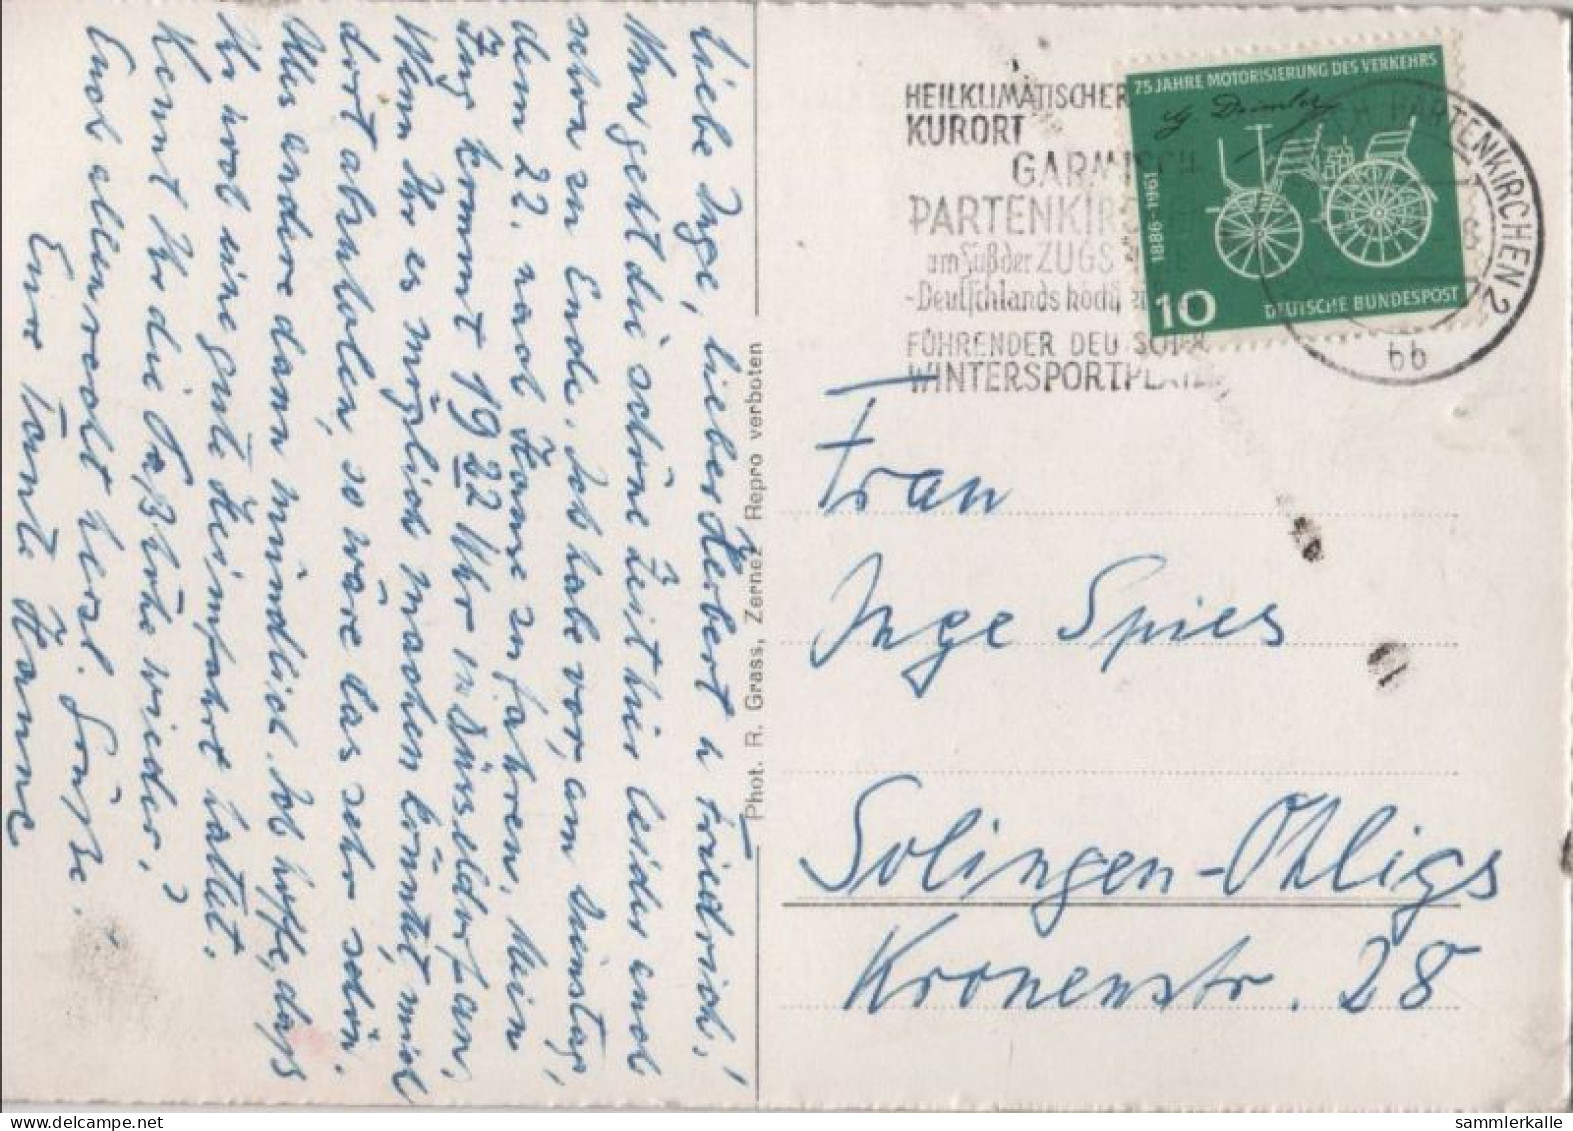 Liebe Inge, lieber Herbert u Friedrich!
Nun geht die schöne Zeit hier leider auch
schon zu Ende. Ich habe vor, am Dienstag,
dem 22. nach Hause zu fahren. Mein
Zug kommt 19 22 Uhr in Düsseldorf an,
Wenn Ihr es möglich machen könntet, mich
dort abzuholen, so wäre das sehr schön.
Alles andere dann mündlich. Ich hoffe, dass
Ihr noch eine gute Heimfahrt hattet.
Kennt Ihr die Paßhöhe wieder?
Euch allen recht herzl. Grüße.
Eure Tante Hanne
Phot. R. Grass, Zernez Repro verboten
HEILKLIMATISCHER
KURORT
GARMISCH
PARTENKIRCHEN
am Fuß der ZUGS
-Deutschlands höchst
FÜHRENDER DEUTSCHER
WINTERSPORTPLATZ
PARTENKIRCHEN 2
bb
75 JAHRE MOTORISIERUNG DES VERKEHRS
G. Daimler
1886-1961
10
DEUTSCHE BUNDESPOST
Frau
Inge Spies
Solingen-Ohligs
Kronenstr. 28
sammlerkalle